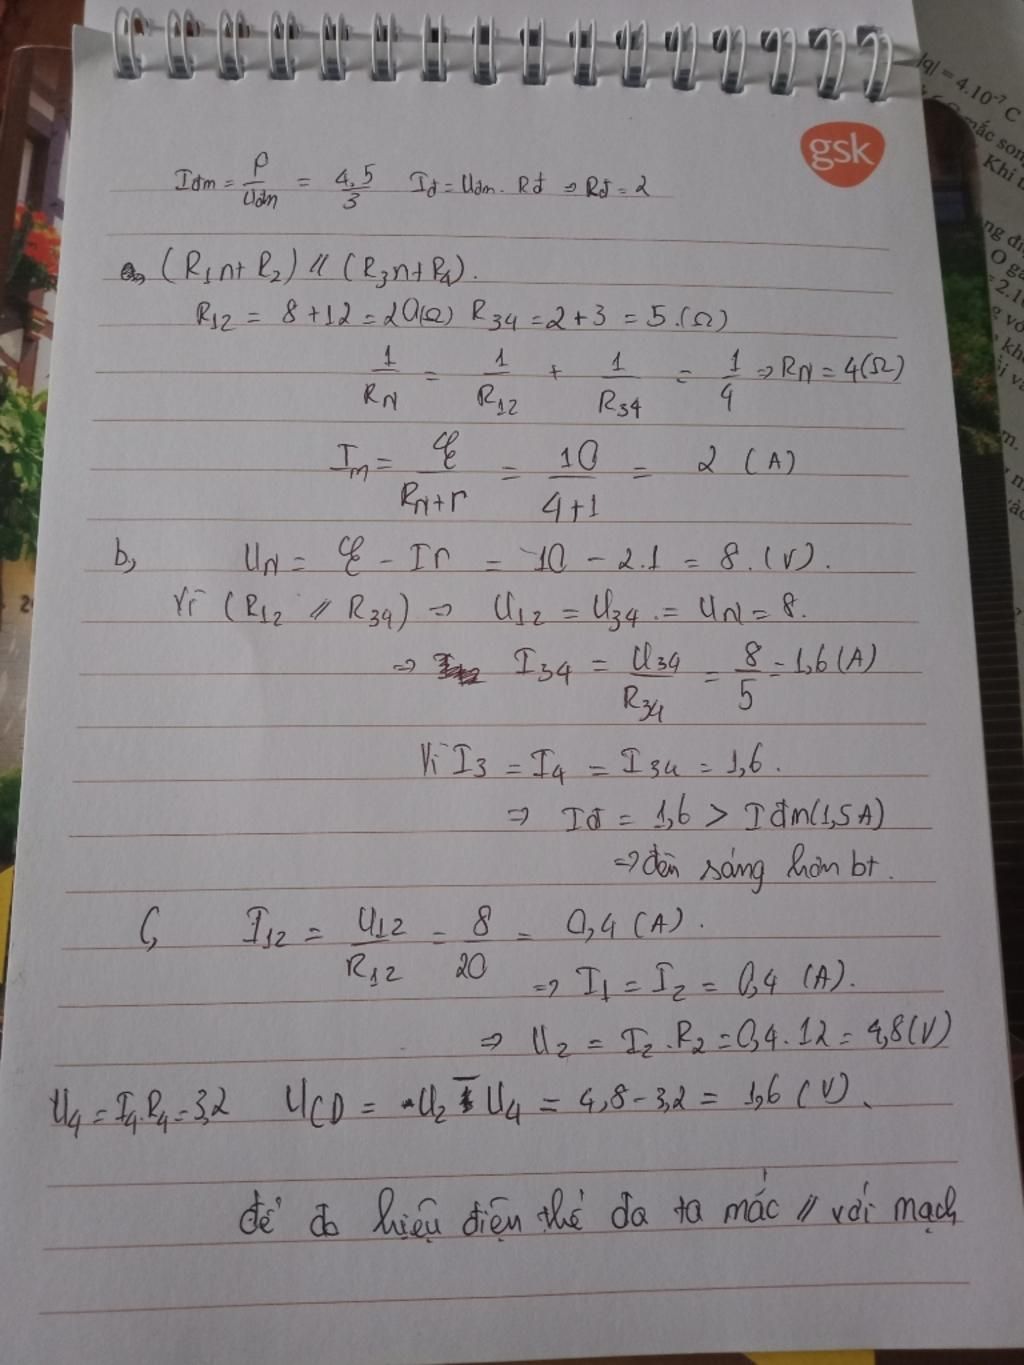 gsk
Iđm = P/Uđm = 4,5/3 Iđ = Uđm . Rđ => Rđ = 2
a, (R1 nt R2) // (R3 nt R4).
R12 = 8 + 12 = 20(Ω) R34 = 2 + 3 = 5.(Ω)
1/RN = 1/R12 + 1/R34 = 1/4 => RN = 4(Ω)
Im = ξ/(RN + r) = 10/(4+1) = 2 (A)
b, UN = ξ - Ir = 10 - 2.1 = 8.(V).
Vì (R12 // R34) => U12 = U34 = UN = 8.
=> I34 = U34/R34 = 8/5 = 1,6(A)
Vì I3 = I4 = I34 = 1,6.
=> Iđ = 1,6 > Iđm(1,5A)
=> đèn sáng hơn bt.
C, I12 = U12/R12 = 8/20 = 0,4 (A).
=> I1 = I2 = 0,4 (A).
=> U2 = I2.R2 = 0,4.12 = 4,8(V)
U4 = I4.R4 = 3,2 UCD = U2 - U4 = 4,8 - 3,2 = 1,6 (V).
để đo hiệu điện thế đa ta mắc // với mạch
|q| = 4.10⁻⁷ C
mắc son
Khi
ng đi
O g